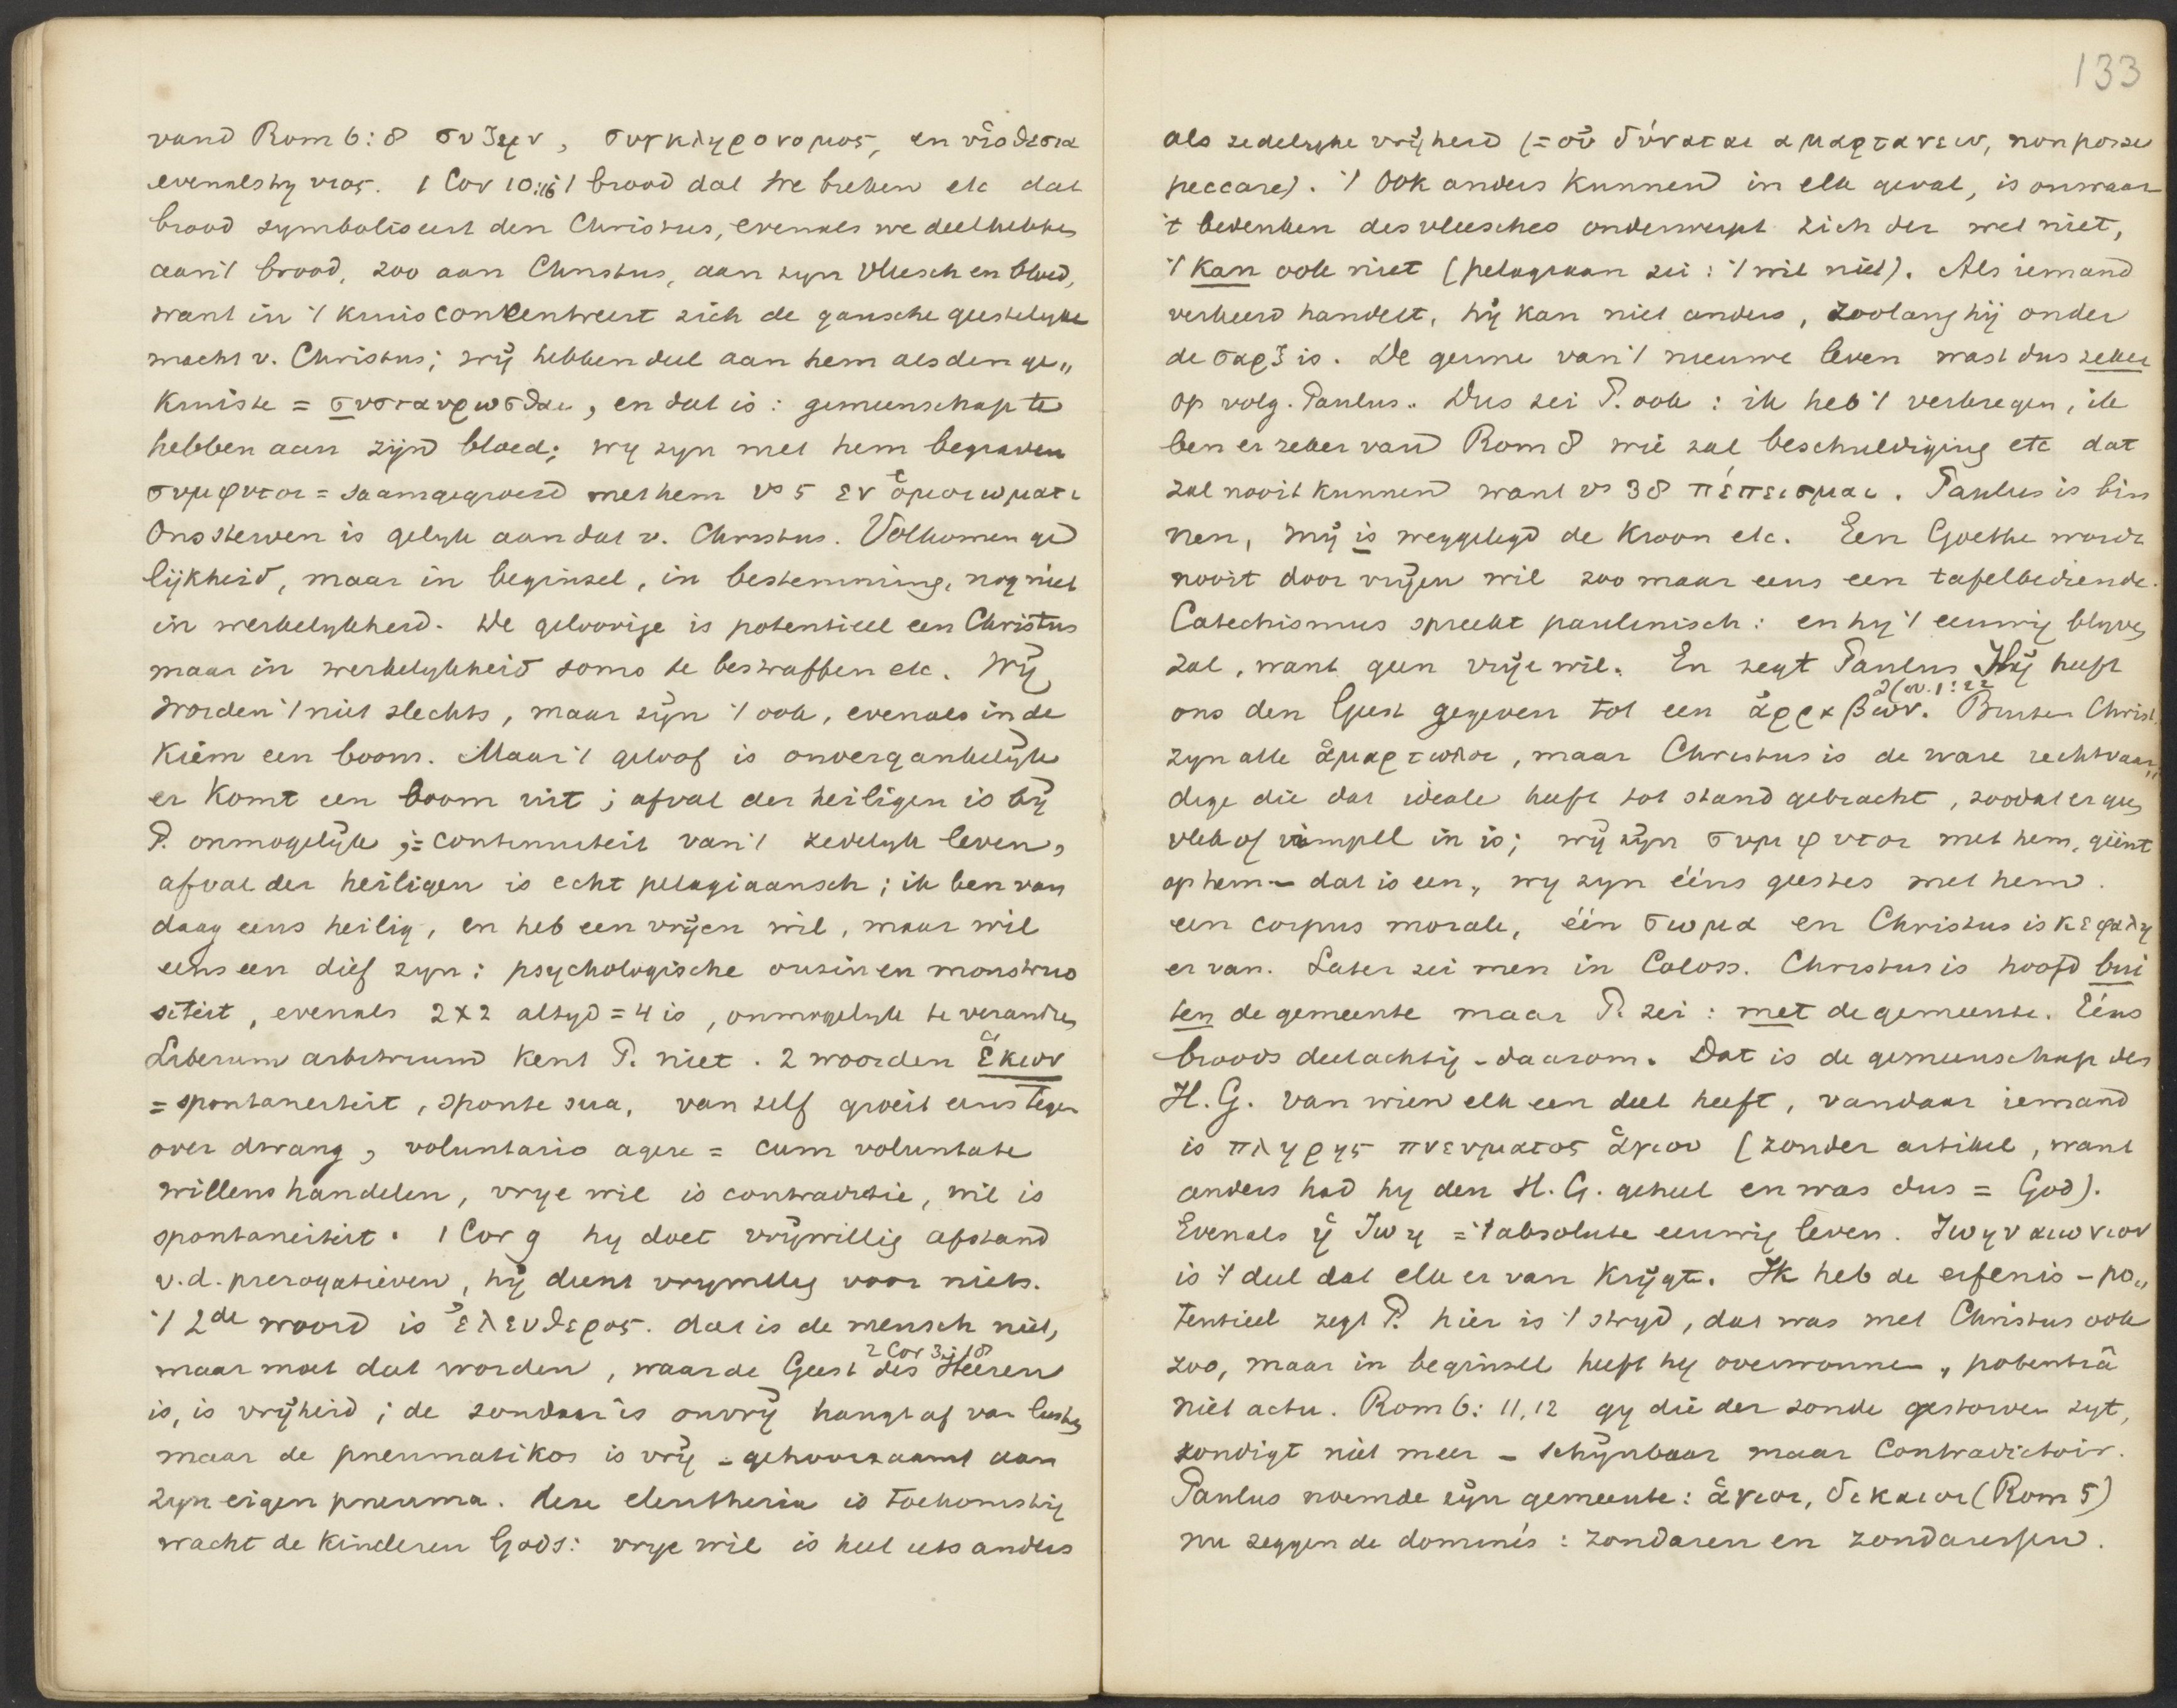 vand Rom 6:8 συζην, συνκληρονομος, en υἱοθεσια
evenals hy υιος. 1 Cor 10:16 't brood dat we breken etc dat
brood symboliseert den Christus, evenals we deelhebben
aan 't brood, zoo aan Christus, aan zyn vleesch en bloed,
want in 't kruis concentreert zich de gansche geestelyke
macht v. Christus; wij hebben deel aan hem als den ge„
kruiste = συσταυρωσθαι, en dat is: gemeenschap te
hebben aan zijn bloed; wy zyn met hem begraven
συμφυτοι = saamgegroeid met hem vs 5 εν ὁμοιωματι
Ons sterven is gelyk aan dat v. Christus. Volkomen ge
lijkheid, maar in beginsel, in bestemming, nog niet
in werkelykheid. De geloovige is potentieel een Christus
maar in werkelykheid soms te bestraffen etc. Wij
worden 't niet slechts, maar zijn 't ook, evenals in de
kiem een boom. Maar 't geloof is onvergankelijk
er komt een boom uit; afval der heiligen is bij
P. onmogelijk ;= continuiteit van 't zedelyk leven,
afval der heiligen is echt pelagiaansch; ik ben van
daag eens heilig, en heb een vrijen wil, maar wil
eens een dief zyn: psychologische onzin en monstruo
siteit, evenals 2x2 altyd = 4 is, onmogelyk te verandren
Liberum arbitrium kent P. niet. 2 woorden ἑκων
= spontaneiteit, sponte sua, van zelf groeit eens tegen
over dwang, voluntario agere = cum voluntate
willens handelen, vrye wil is contradictie, wil is
spontaneiteit. 1 Cor 9 hy doet vrijwillig afstand
v.d. prerogatieven, hij dient vrywillig voor niets.
't 2de woord is ἐλευθερος. dat is de mensch niet,
maar moet dat worden, waar de Geest des Heeren 2 Cor 3:18
is, is vrijheid; de zondaar is onvrij hangt af van lusten
maar de pneumatikos is vrij - gehoorzaamt aan
zyn eigen pneuma. deze eleutheria is toekomstig
wacht de kinderen Gods: vrye wil is heel iets anders
133
als zedelyke vrijheid (= οὐ δύναται αμαρτανειν, non posse
peccare). 't Ook anders kunnen in elk geval, is onwaar
't bedenken des vleesches onderwerpt zich der wet niet,
't kan ook niet (pelagiaan zei: 't wil niet). Als iemand
verkeerd handelt, hij kan niet anders, zoolang hij onder
de σαρξ is. De genne van 't nieuwe leven wast dus zeker
op volg. Paulus. Dus zei P. ook: ik heb 't verkregen, ik
ben er zeker van Rom 8 wie zal beschuldiging etc dat
zal nooit kunnen want vs 38 πέπεισμαι. Paulus is bin
nen, mij is weggelegd de kroon etc. Een Goethe wordt
nooit door vrijen wil zoo maar eens een tafelbediende.
Catechismus spreekt paulinisch: en hy 't eeuwig blyven
zal, want geen vrije wil. En zegt Paulus Hij heeft
ons den Geest gegeven tot een ἀρραβων. 2 Cor. 1:22 Buiten Christ.
zyn alle ἁμαρτωλοι, maar Christus is de ware rechtvaar„
dige die dat ideale heeft tot stand gebracht, zoodat er geen
vlek of rimpel in is; wij zijn συμφυτοι met hem, geënt
op hem - dat is een„ wy zyn ééns geestes met hem.
een corpus morale, één σωμα en Christus is κεφαλη
er van. Later zei men in Coloss. Christus is hoofd bui
ten de gemeente maar P. zei: met de gemeente. Eéns
broods deelachtig - daarom. Dat is de gemeenschap des
H. G. van wien elk een deel heeft, vandaar iemand
is πληρης πνευματος ἁγιου (zonder artikel, want
anders had hy den H. G. geheel en was dus = God).
Evenals ἡ ζωη = 't absolute eeuwig leven. ζωην αιωνιον
is 't deel dat elk er van krijgt. Ik heb de erfenis - po„
tentieel zegt P. hier is 't stryd, dat was met Christus ook
zoo, maar in beginsel heeft hy overwonnen, potentiâ
niet actu. Rom 6: 11,12 gy die der zonde gestorven zyt,
zondigt niet meer - schijnbaar maar contradictoir.
Paulus noemde zijn gemeente: ἁγιοι, δικαιοι (Rom 5)
nu zeggen de dominés: zondaren en zondaressen.